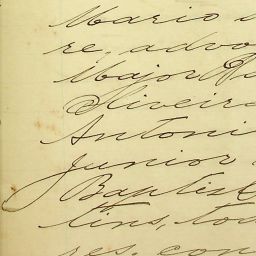 Mario
re, advo
Major
Oliveira
Antoni
Junior
Baptist
tins, tou
res, con